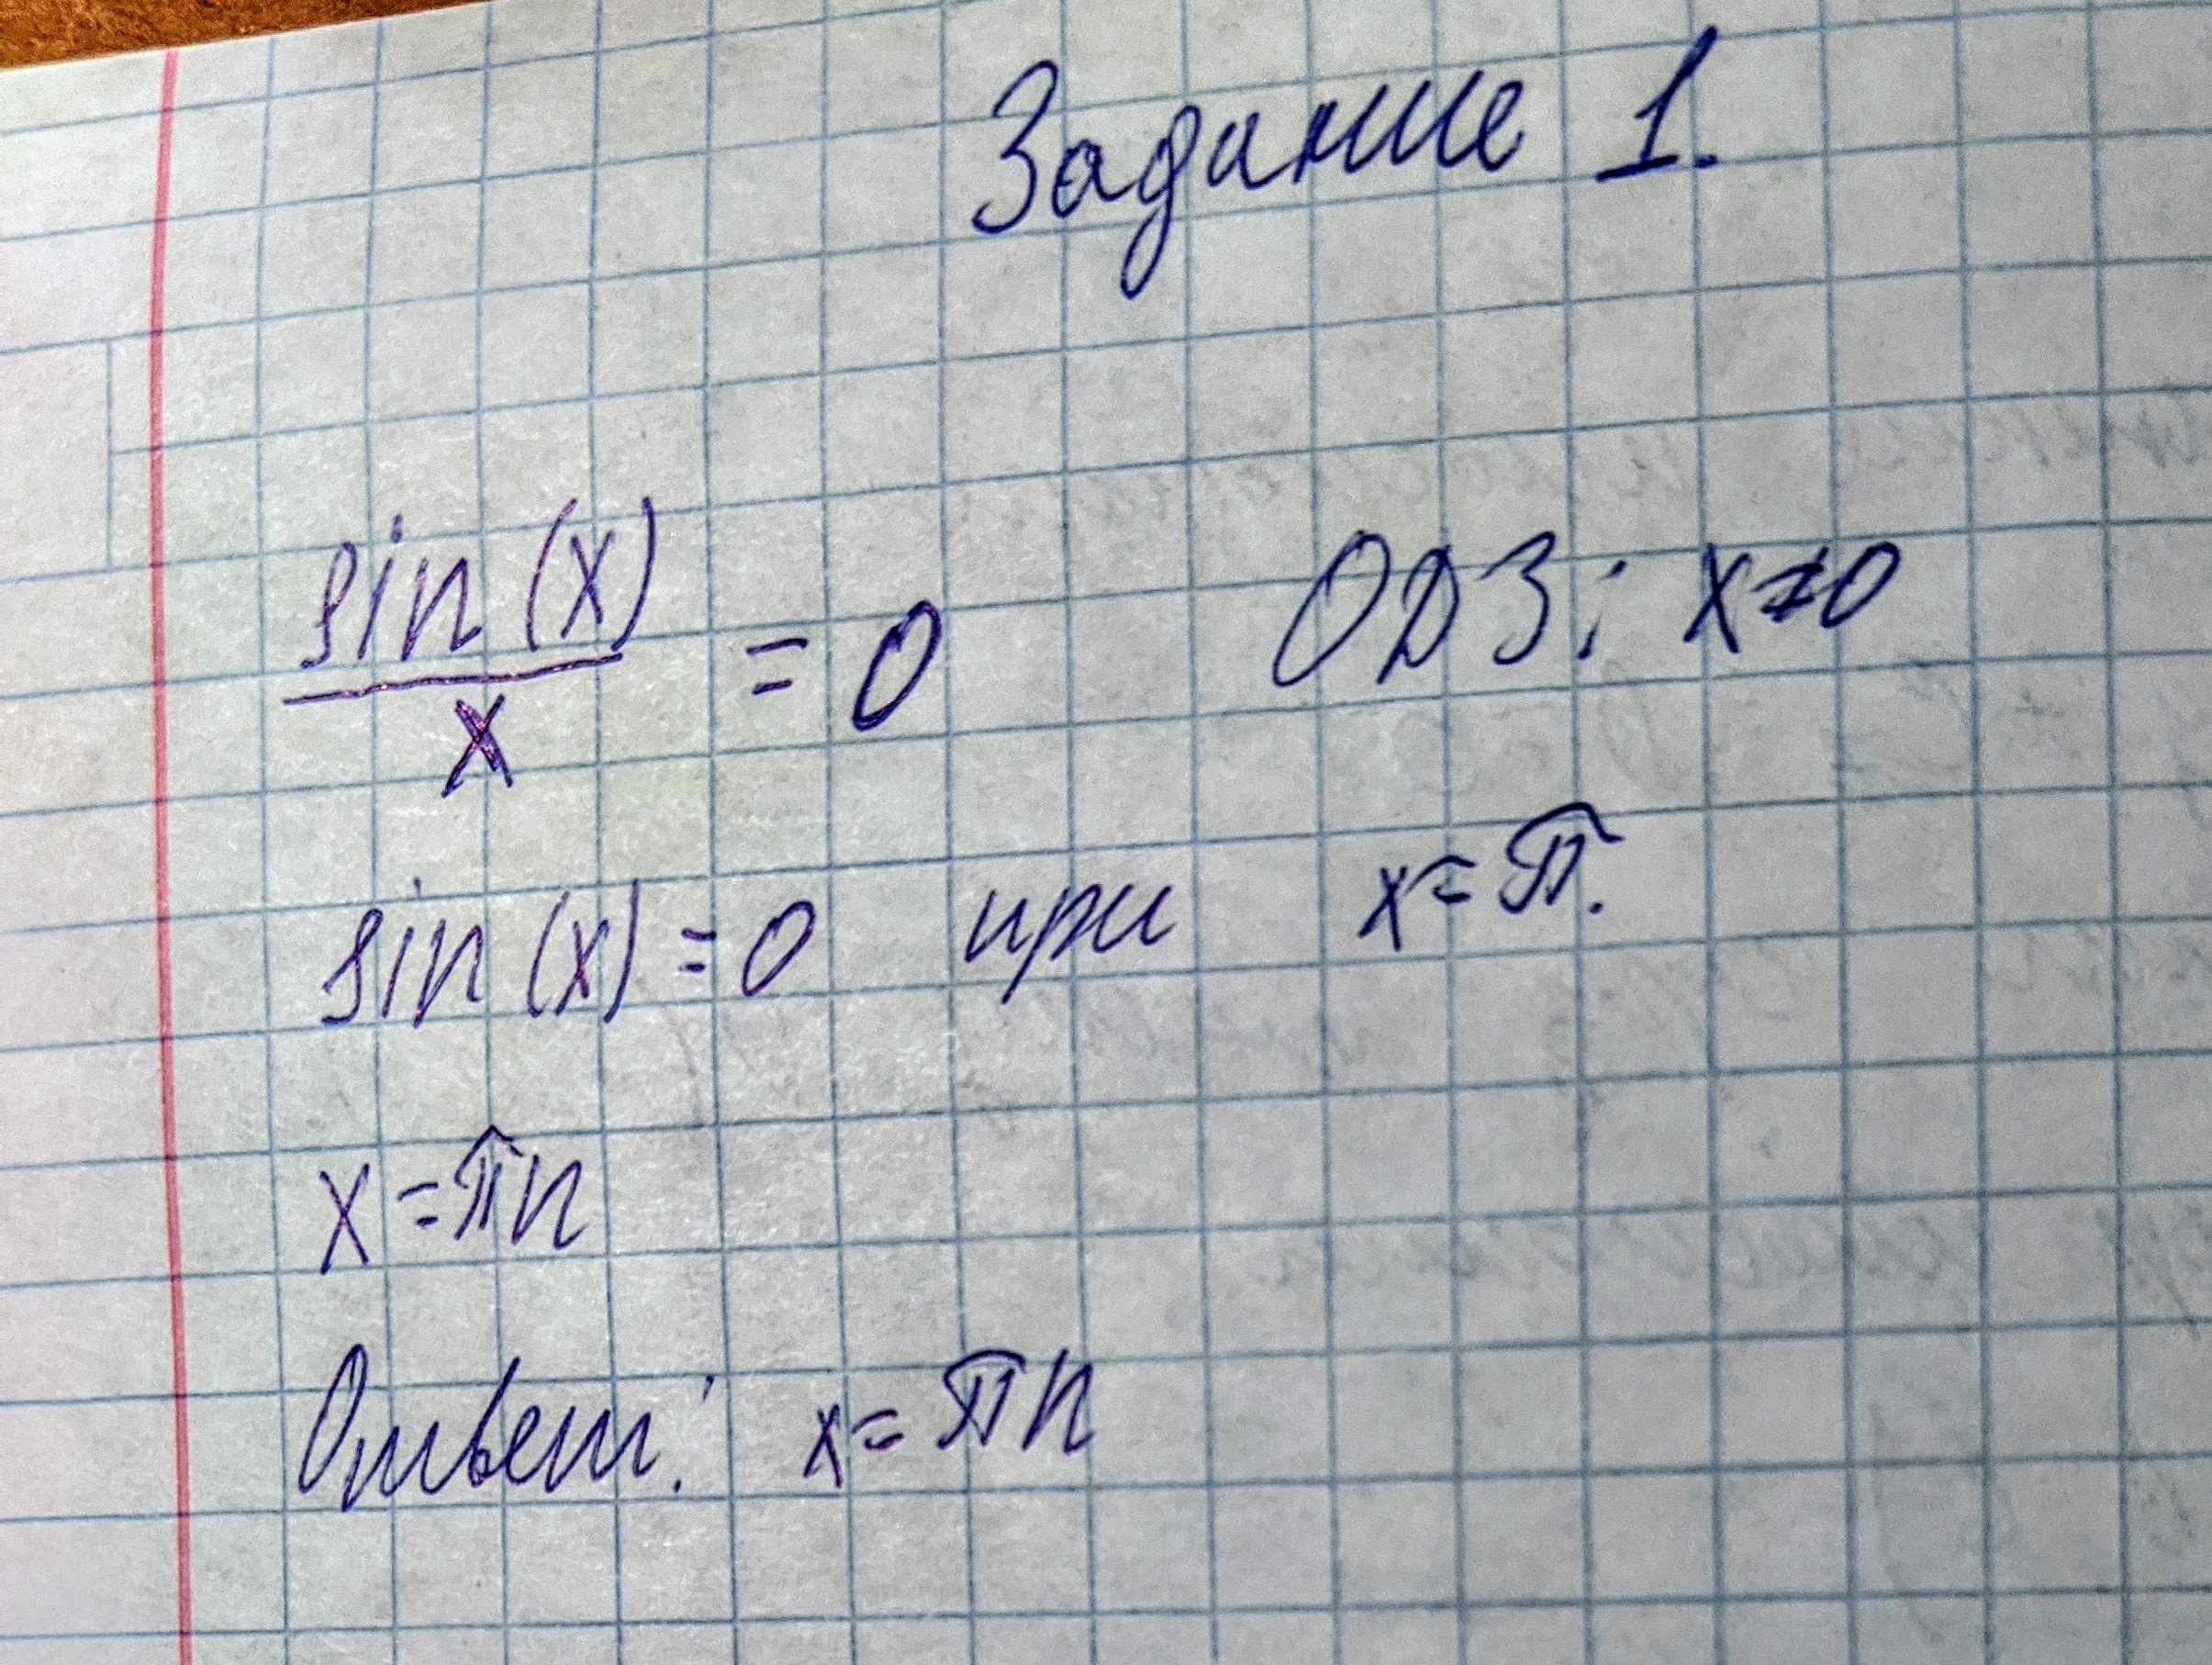 Задание 1.
sin(x)/x = 0 ОДЗ: x≠0
sin(x)=0 при x=π.
x=πn
Ответ: x=πn